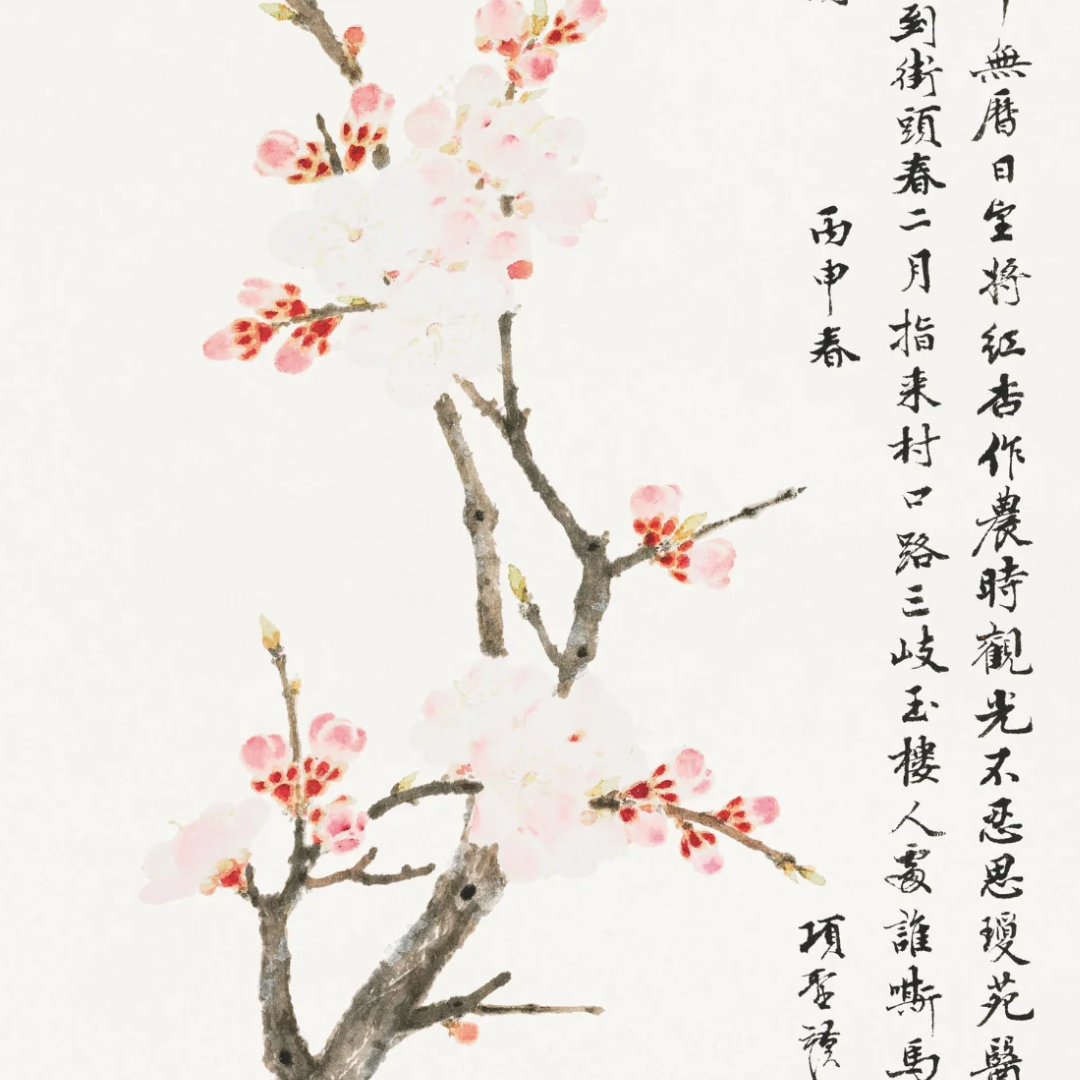 無曆日望將紅杏作農時觀光不忍思瓊苑醫
到街頭春二月指来村口路三岐玉樓人處誰嘶馬
丙申春
項聖謨